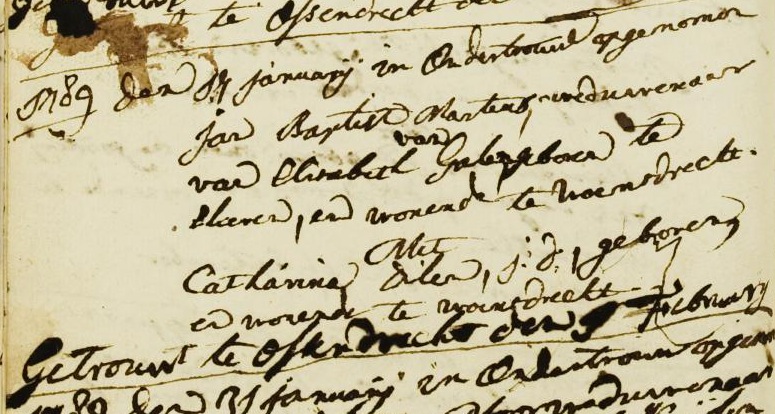 te Ossendrecht den
1789 den 17 januarij in Ondertrouw opgenomen
Jan Baptist Martens, weduwenaar
van Elisabeth van geboren te
en wonende te woensdrecht.
Met
Catharina , j: d:, geboren
en wonende te woensdrecht
Getrouwt te Ossendrecht den februarij
den 31 januarij in Ondertrouw
weduwenaar